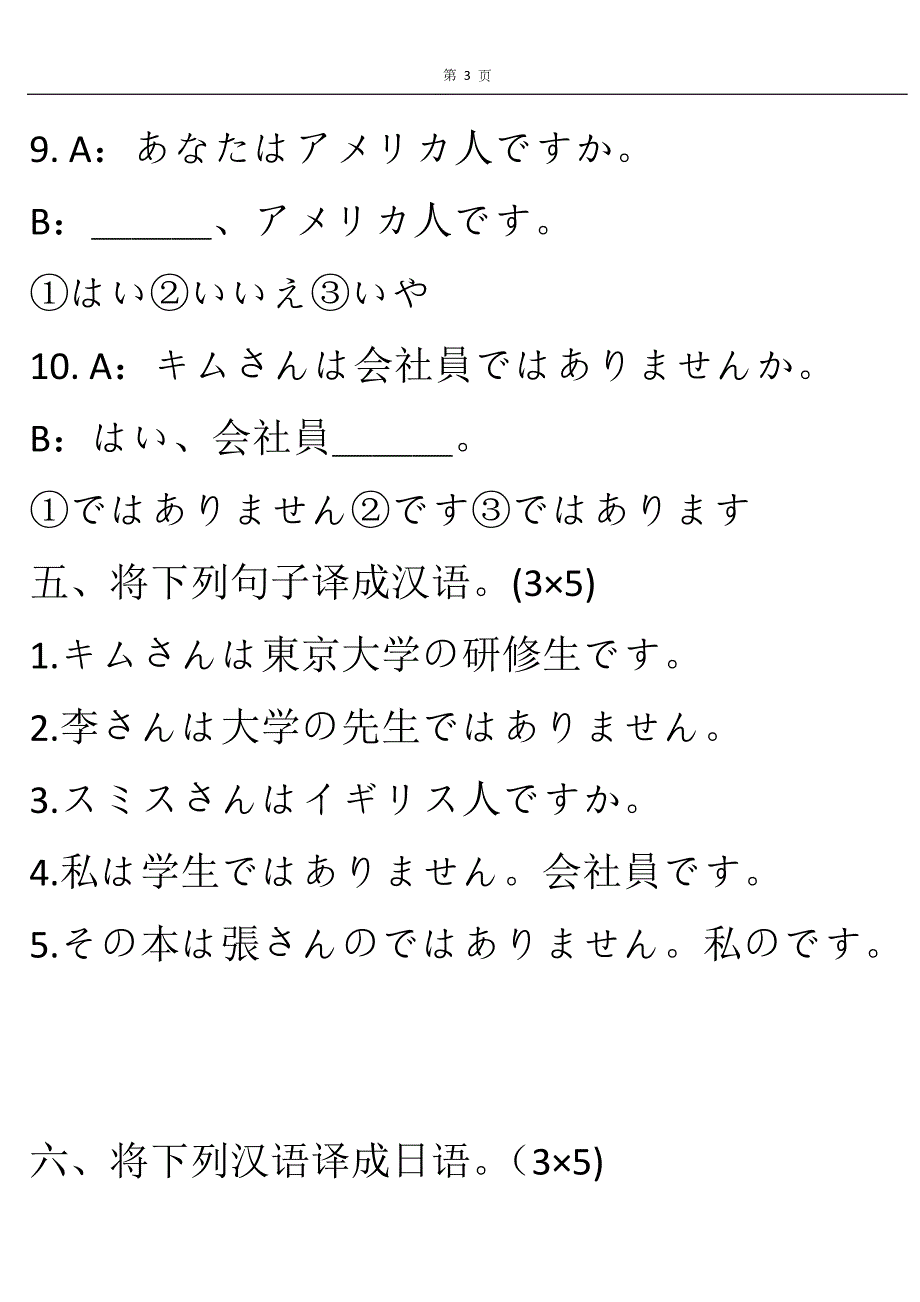 第 3 页
9. A：あなたはアメリカ人ですか。
B：______、アメリカ人です。
①はい②いいえ③いや
10. A：キムさんは会社員ではありませんか。
B：はい、会社員______。
①ではありません②です③ではあります
五、将下列句子译成汉语。(3×5)
1.キムさんは東京大学の研修生です。
2.李さんは大学の先生ではありません。
3.スミスさんはイギリス人ですか。
4.私は学生ではありません。会社員です。
5.その本は張さんのではありません。私のです。
六、将下列汉语译成日语。（3×5)